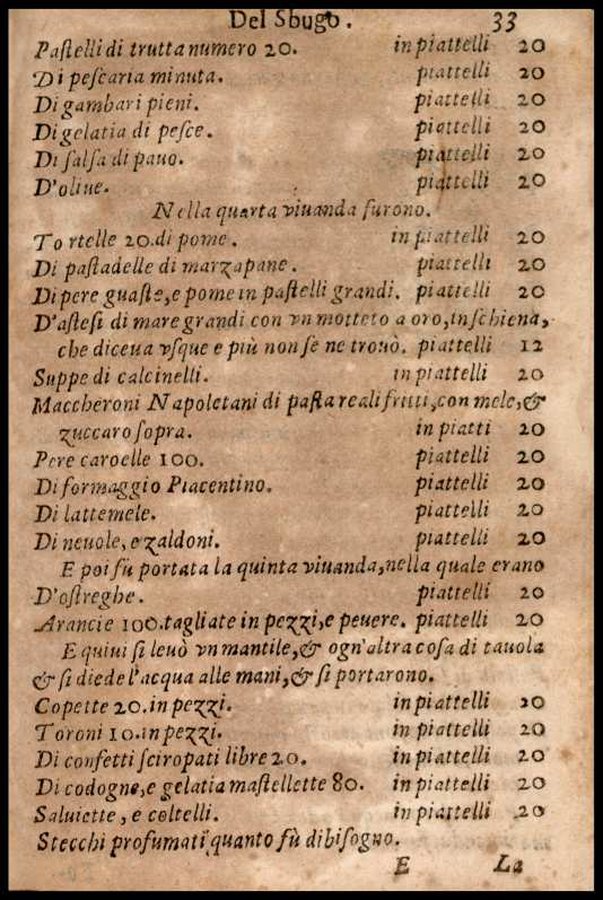 Del Sbugo. 33
Paſtelli di trutta numero 20. in piattelli 20
Di peſcaria minuta. piattelli 20
Di gambari pieni. piattelli 20
Di gelatia di peſce. piattelli 20
Di ſalſa di pauo. piattelli 20
D'oliue. piattelli 20
Nella quarta viuanda furono.
Tortelle 20. di pome. in piattelli 20
Di paſtadelle di marzapane. piattelli 20
Di pere guaſte, e pome in paſtelli grandi. piattelli 20
D'aſteſi di mare grandi con vn motteto a oro, in ſchiena,
che diceua vſque e più non ſe ne trouò. piattelli 12
Suppe di calcinelli. in piattelli 20
Maccheroni Napoletani di paſta reali fritti, con mele, &
zuccaro ſopra. in piatti 20
Pere caroelle 100. piattelli 20
Di formaggio Piacentino. piattelli 20
Di lattemele. piattelli 20
Di neuole, e zaldoni. piattelli 20
E poi fù portata la quinta viuanda, nella quale erano
D'oſtreghe. piattelli 20
Arancie 100. tagliate in pezzi, e peuere. piattelli 20
E quiui ſi leuò vn mantile, & ogn'altra coſa di tauola
& ſi diede l'acqua alle mani, & ſi portarono.
Copette 20. in pezzi. in piattelli 20
Toroni 10. in pezzi. in piattelli 20
Di confetti ſciropati libre 20. in piattelli 20
Di codogne, e gelatia maſtellette 80. in piattelli 20
Saluiette, e coltelli. in piattelli 20
Stecchi profumati quanto fù di biſogno.
E La